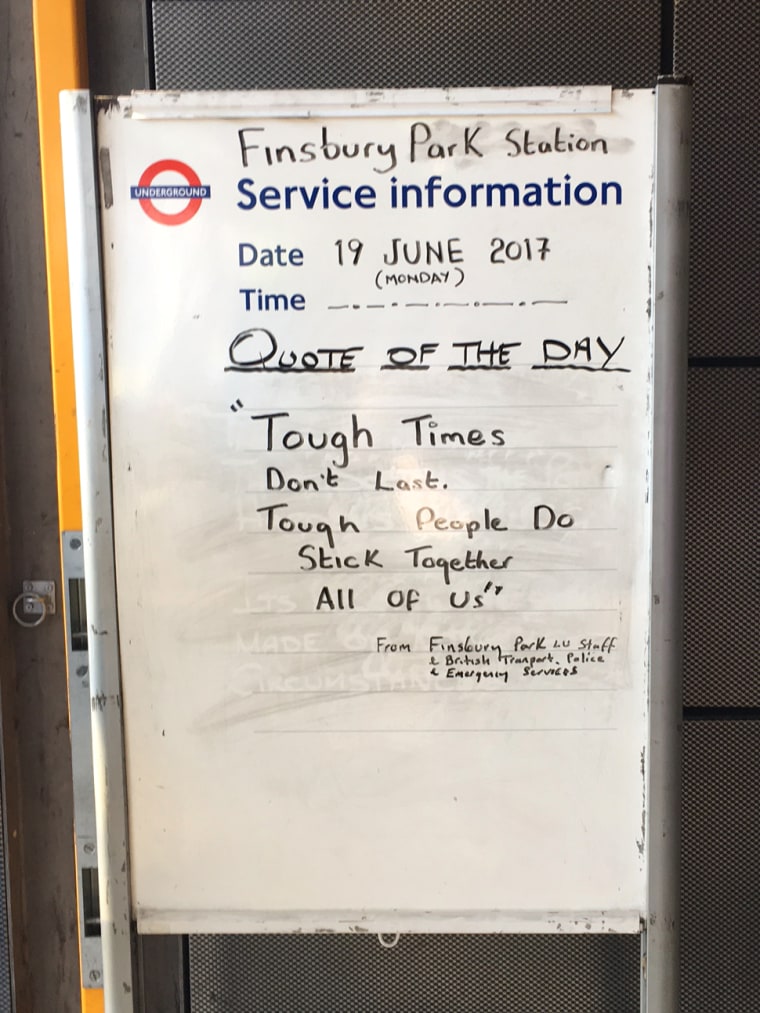 Finsbury Park Station
UNDERGROUND
Service information
Date 19 JUNE 2017
(MONDAY)
Time
QUOTE OF THE DAY
"Tough Times
Don't Last.
Tough People Do
Stick Together
All Of Us"
From Finsbury Park LU Staff
& British Transport. Police
& Emergency Services
MADE
CIRCUMSTAN